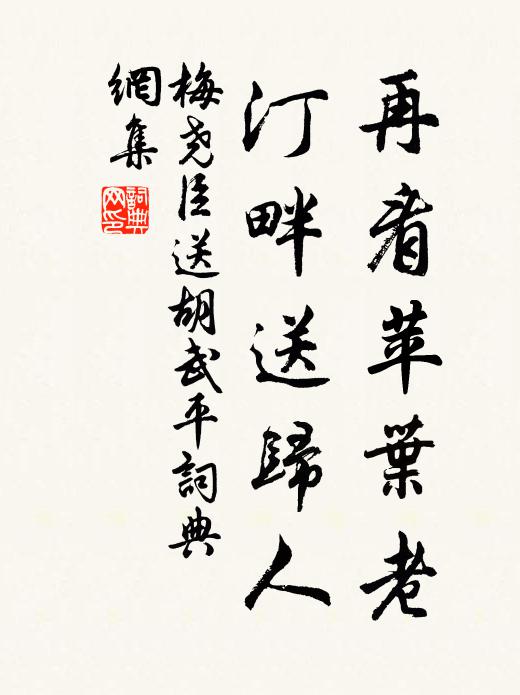 再看苹葉老
汀畔送歸人
梅尧臣送胡武平詞典
網集
詞典网印